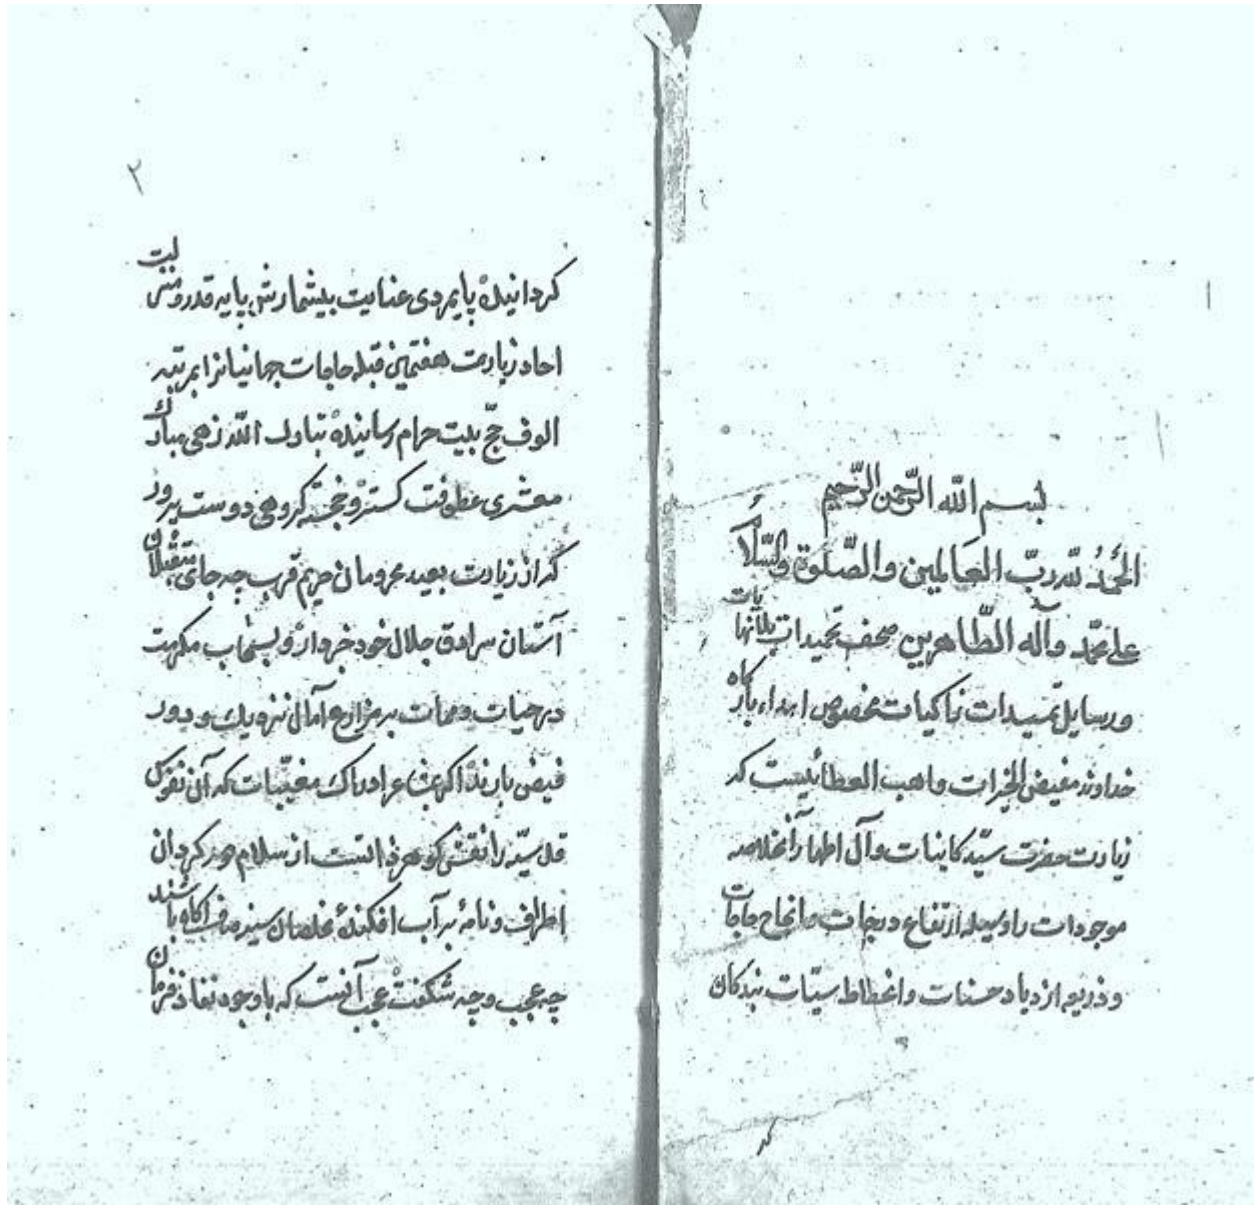 بسم الله الرّحمن الرّحيم
الحمدُ لله ربّ العالمين والصّلوة والسّلام
على محمّد وآله الطّاهرين صحف تحميدات بلانهايات
ورسايل تمسيدات زاكيات مخصوص اهداء باركاه
خداوند مفيض الخيرات واهب العطائيست كه
زيارت حضرت سيّد كاينات وآل اطهار آنخلاصه
موجودات را وسيله ارتفاع درجات وانجاح حاجات
وذريعه ازدياد حسنات وانحطاط سيّات بندكان
كر
۲
كردانيده پايمردى عنايت بيشمارش پايه قدر ومنزلت
احاد زيارت هفتمين قبله حاجات جهانيانرا بمرتبه
الوف حجّ بيت حرام رسانيده تبارك الله زهى مبارك
معشرى عطوفت كستر وخجسته كروهى دوست پرور
كه از زيارت بعيد محرومان حريم قرب چه جاى متقبلان
آستان سرادق جلال خود خبردار وبسحاب مكرمت
در حيات وممات بر مزارع آمال نزديك ودور
فيض بارند اكر بنابر ادراك مغيّبات كه آن نفوس
قدسيّه را نقش كوهر ذاتست از سلام هرزه كردان
اطراف ونامه بر آب افكنده مخلصان سينه صاف اكاه باشند
چه عجب وچه شكفت عجب آنست كه با وجود نفاذ فرمان